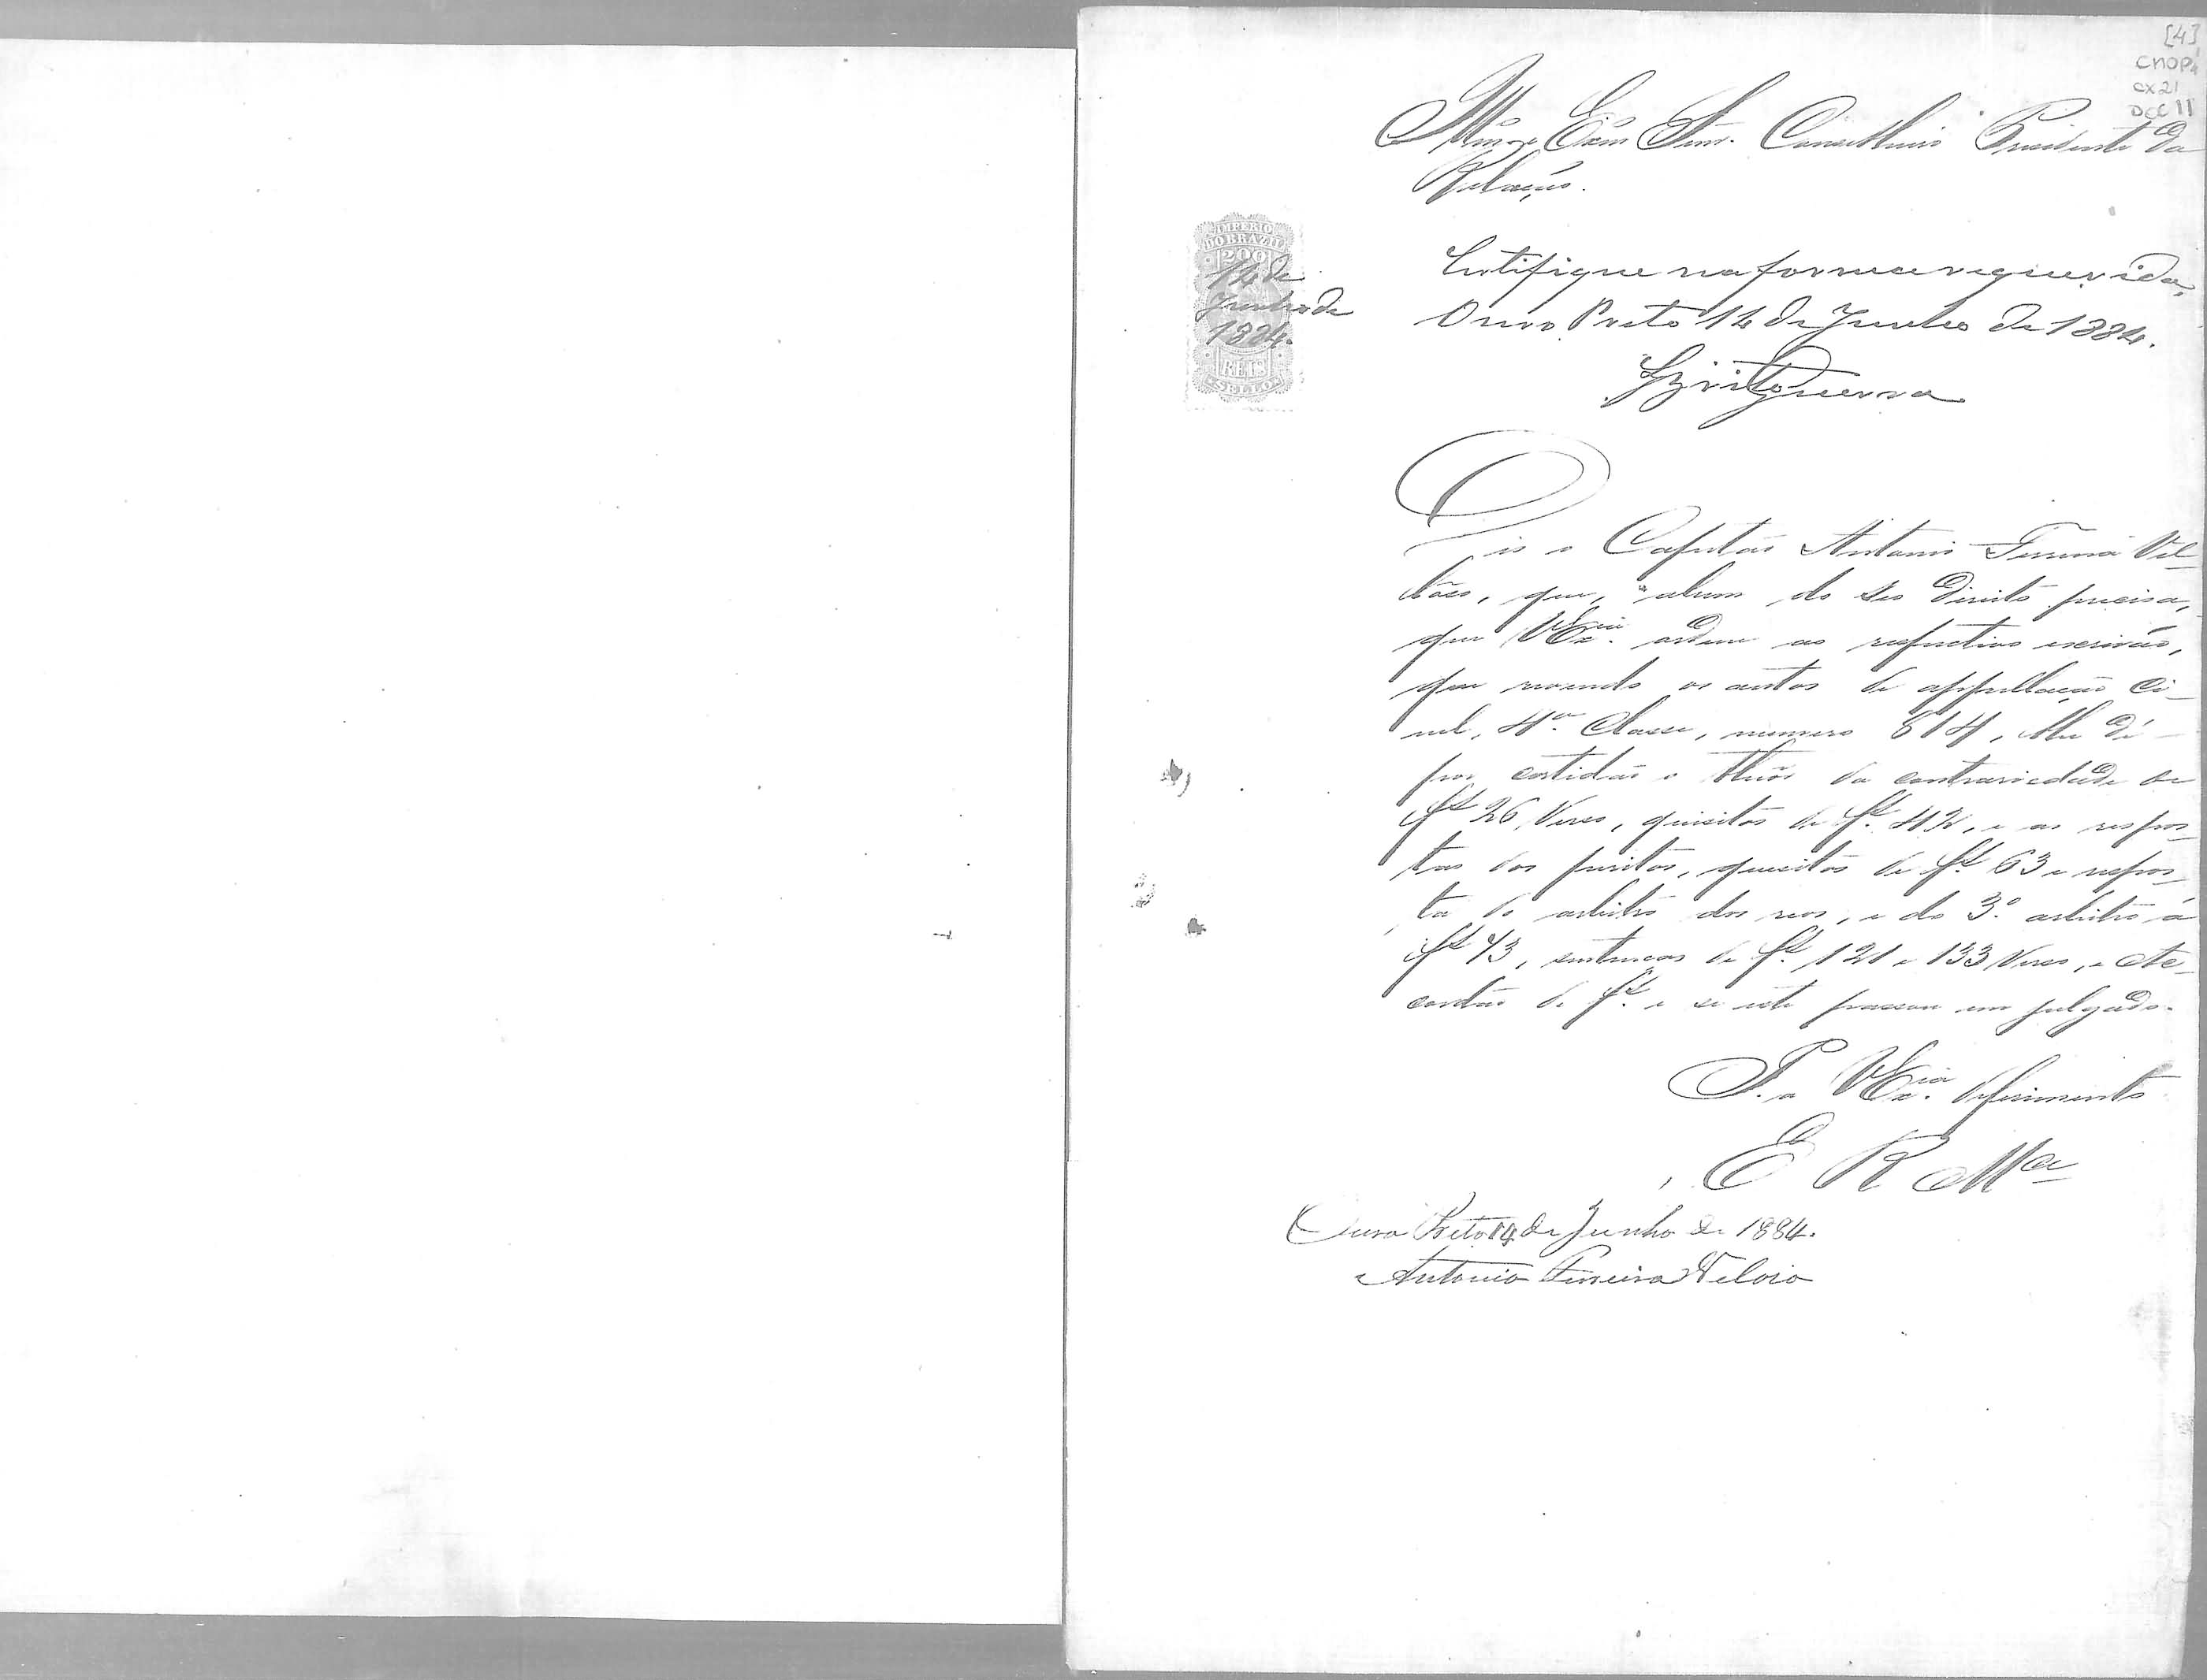 [4]
CMOP
CX 21
DOC 11
Illmo e Exmo Senr. Conselheiro Presidente da
Relação.
IMPERIO
DO BRAZIL
200
RÉIS
SELLO
14 de
Junho de
1884.
Certifique na forma requerida,
Ouro Preto 14 de Junho de 1884.
Diz o Capitão Antonio Ferreira Vel-
lozo, que, a bem do seo direito precisa,
que VExcia. ordene ao respectivo escrivão,
que revendo os autos de appellação Ci-
vel, 4a. Classe, numero 814, lhe dê
por certidão o theor da contrariedade de
fs 26 Verso, quisitos de fs. 42, e as respos-
tas dos peritos, quesitos de fs 63 e respos-
ta do arbitro dos reos, e do 3o. arbitro á
fs 73, sentenças de fs. 121 e 133 Verso, e Ac-
cordão de fs. e se este passou em julgado.
P. a VExcia. deferimento
E R Mce
Ouro Preto 14 de Junho de 1884.
Antonio Ferreira Velozo